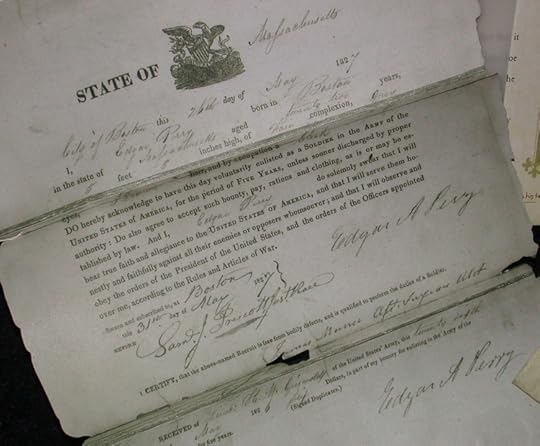 STATE OF Massachusetts
City of Boston this 26th day of May 1827
I, Edgar A Perry born in Boston
in the state of Massachusetts aged twenty two years,
5 feet inches high, of complexion,
eyes, hair, and by occupation a clerk
DO hereby acknowledge to have this day voluntarily enlisted as a SOLDIER in the ARMY of the
UNITED STATES OF AMERICA, for the period of FIVE YEARS, unless sooner discharged by proper
authority: Do also agree to accept such bounty, pay, rations and clothing, as is or may be es-
tablished by law. And I, Edgar Perry do solemnly swear that I will
bear true faith and allegiance to the UNITED STATES OF AMERICA, and that I will serve them ho-
nestly and faithfully against all their enemies or opposers whomsoever; and that I will observe and
obey the orders of the President of the United States, and the orders of the Officers appointed
over me, according to the Rules and Articles of War.
Sworn and subscribed to, at Boston
this 31st day of May 1827
BEFORE
Edgar A Perry
I CERTIFY, that the above-named Recruit is free from bodily defects, and is qualified to perform the duties of a Soldier.
RECEIVED of of the United States' Army, this
May 182 Dollars, in part of my bounty for enlisting in the Army of the
for five years. (Signed Duplicates.)
Edgar A Perry